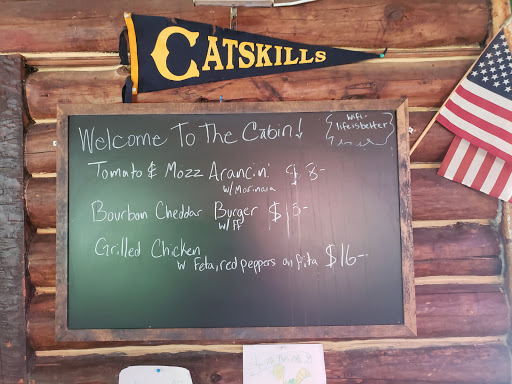 CATSKILLS
Welcome To The Cabin!
wifi-
lifeisbetter
Tomato & Mozz Arancini $8-
w/Marinara
Bourbon Cheddar Burger $15-
w/FF
Grilled Chicken
w Feta, red peppers on Pita $16-